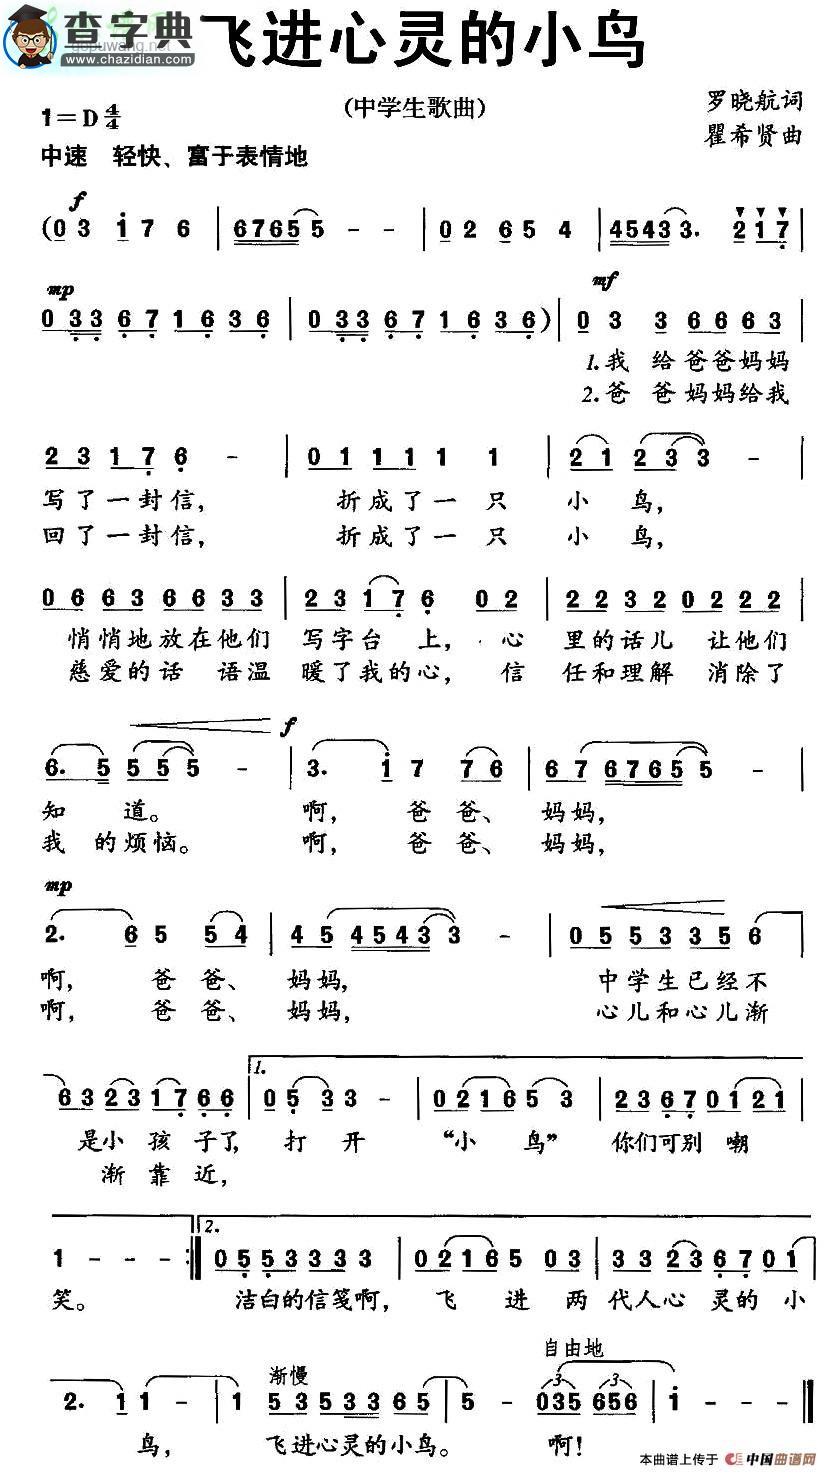 查字典
www.chazidian.com
飞进心灵的小鸟
(中学生歌曲)
罗晓航词
瞿希贤曲
1=D 4/4
中速 轻快、富于表情地
f
(0 3 1 7 6 | 6765 5 - - | 0 2 6 5 4 | 4543 3. 217 |
mp mf
0 33 67 1 6 3 6 | 0 33 67 1 6 3 6) | 0 3 3 6 6 6 3
1.我给爸爸妈妈
2.爸爸妈妈给我
2 3 1 7 6 - | 0 1 1 1 1 1 | 2 1 2 3 3 -
写了一封信, 折成了一只 小 鸟,
回了一封信, 折成了一只 小 鸟,
0 6 6 3 6 6 3 3 | 2 3 1 7 6 0 2 | 2 2 3 2 0 2 2 2
悄悄地放在他们 写字台 上, 心 里的话儿 让他们
慈爱的话 语温 暖了我的心, 信 任和理解 消除了
f
6. 5 5 5 5 - | 3. 1 7 7 6 | 6 7 6765 5 -
知 道。 啊, 爸 爸、 妈妈,
我 的烦恼。 啊, 爸 爸、 妈妈,
mp
2. 6 5 5 4 | 4 5 4543 3 - | 0 5 5 3 3 5 6
啊, 爸 爸、 妈妈, 中学生已经不
啊, 爸 爸、 妈妈, 心儿和心儿渐
1.
6 3 2 3 1 7 6 6 | 0 5 3 3 3 - | 0 2 1 6 5 3 | 2 3 6 7 0 1 2 1
是小 孩 子了, 打 开 “小 鸟” 你们可别 嘲
渐 靠 近,
2.
1 - - - :| 0 5 5 3 3 3 3 | 0 2 1 6 5 0 3 | 3 3 2 3 6 7 0 1
笑。 洁白的信笺啊, 飞 进 两 代人心 灵的 小
渐慢 自由地
2. 1 1 - | 1 5 3 5 3 3 6 5 | 5 - 035 656 | 1 - - -
鸟, 飞进心灵的小鸟。 啊!
本曲谱上传于 中国曲谱网